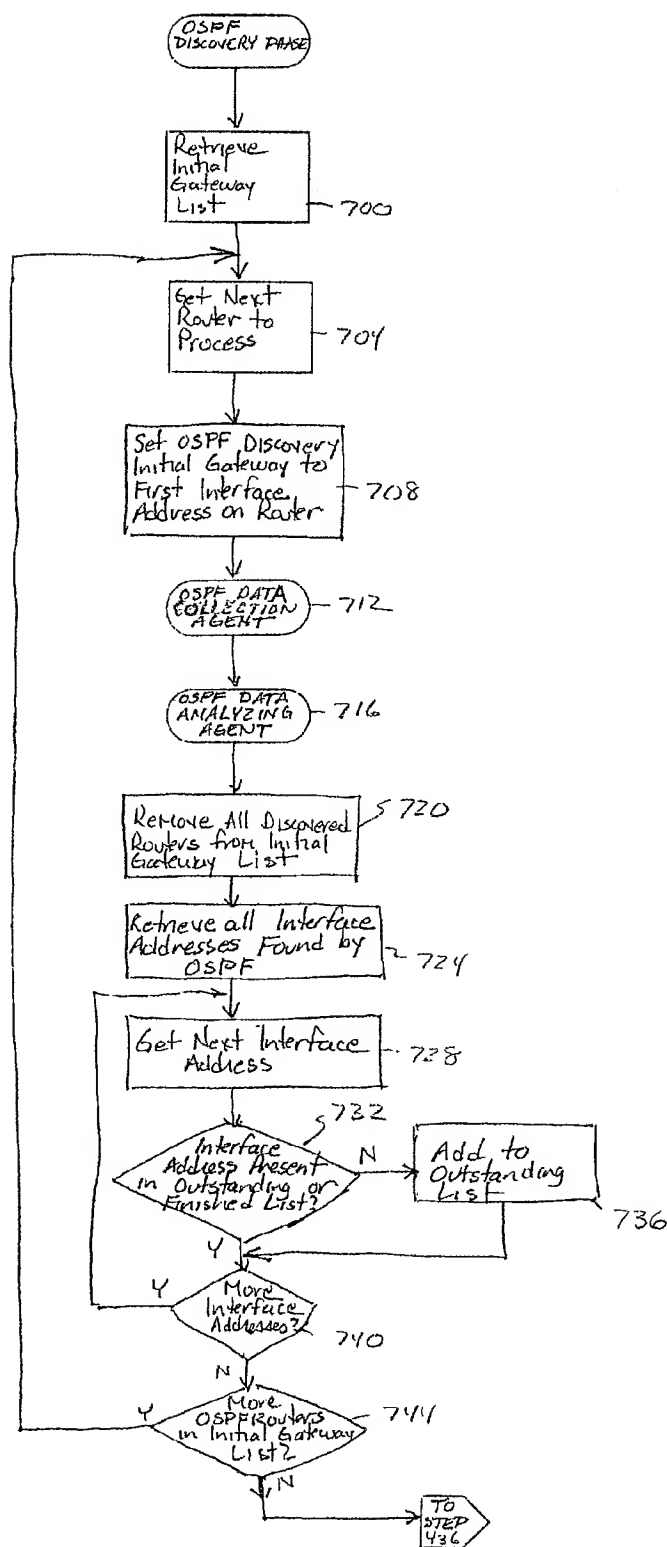 OSPF
DISCOVERY PHASE
Retrieve
Initial
Gateway
List
700
Get Next
Router to
Process
704
Set OSPF Discovery
Initial Gateway to
First Interface
Address on Router
708
OSPF DATA
COLLECTION
AGENT
712
OSPF DATA
ANALYZING
AGENT
716
Remove All Discovered
Routers from Initial
Gateway List
720
Retrieve all Interface
Addresses Found by
OSPF
724
Get Next Interface
Address
728
732
Interface
Address Present
in Outstanding or
Finished List?
N
Add to
Outstanding
List
736
Y
Y
More
Interface
Addresses?
740
N
Y
More
OSPF Routers
in Initial Gateway
List?
744
N
TO
STEP
436